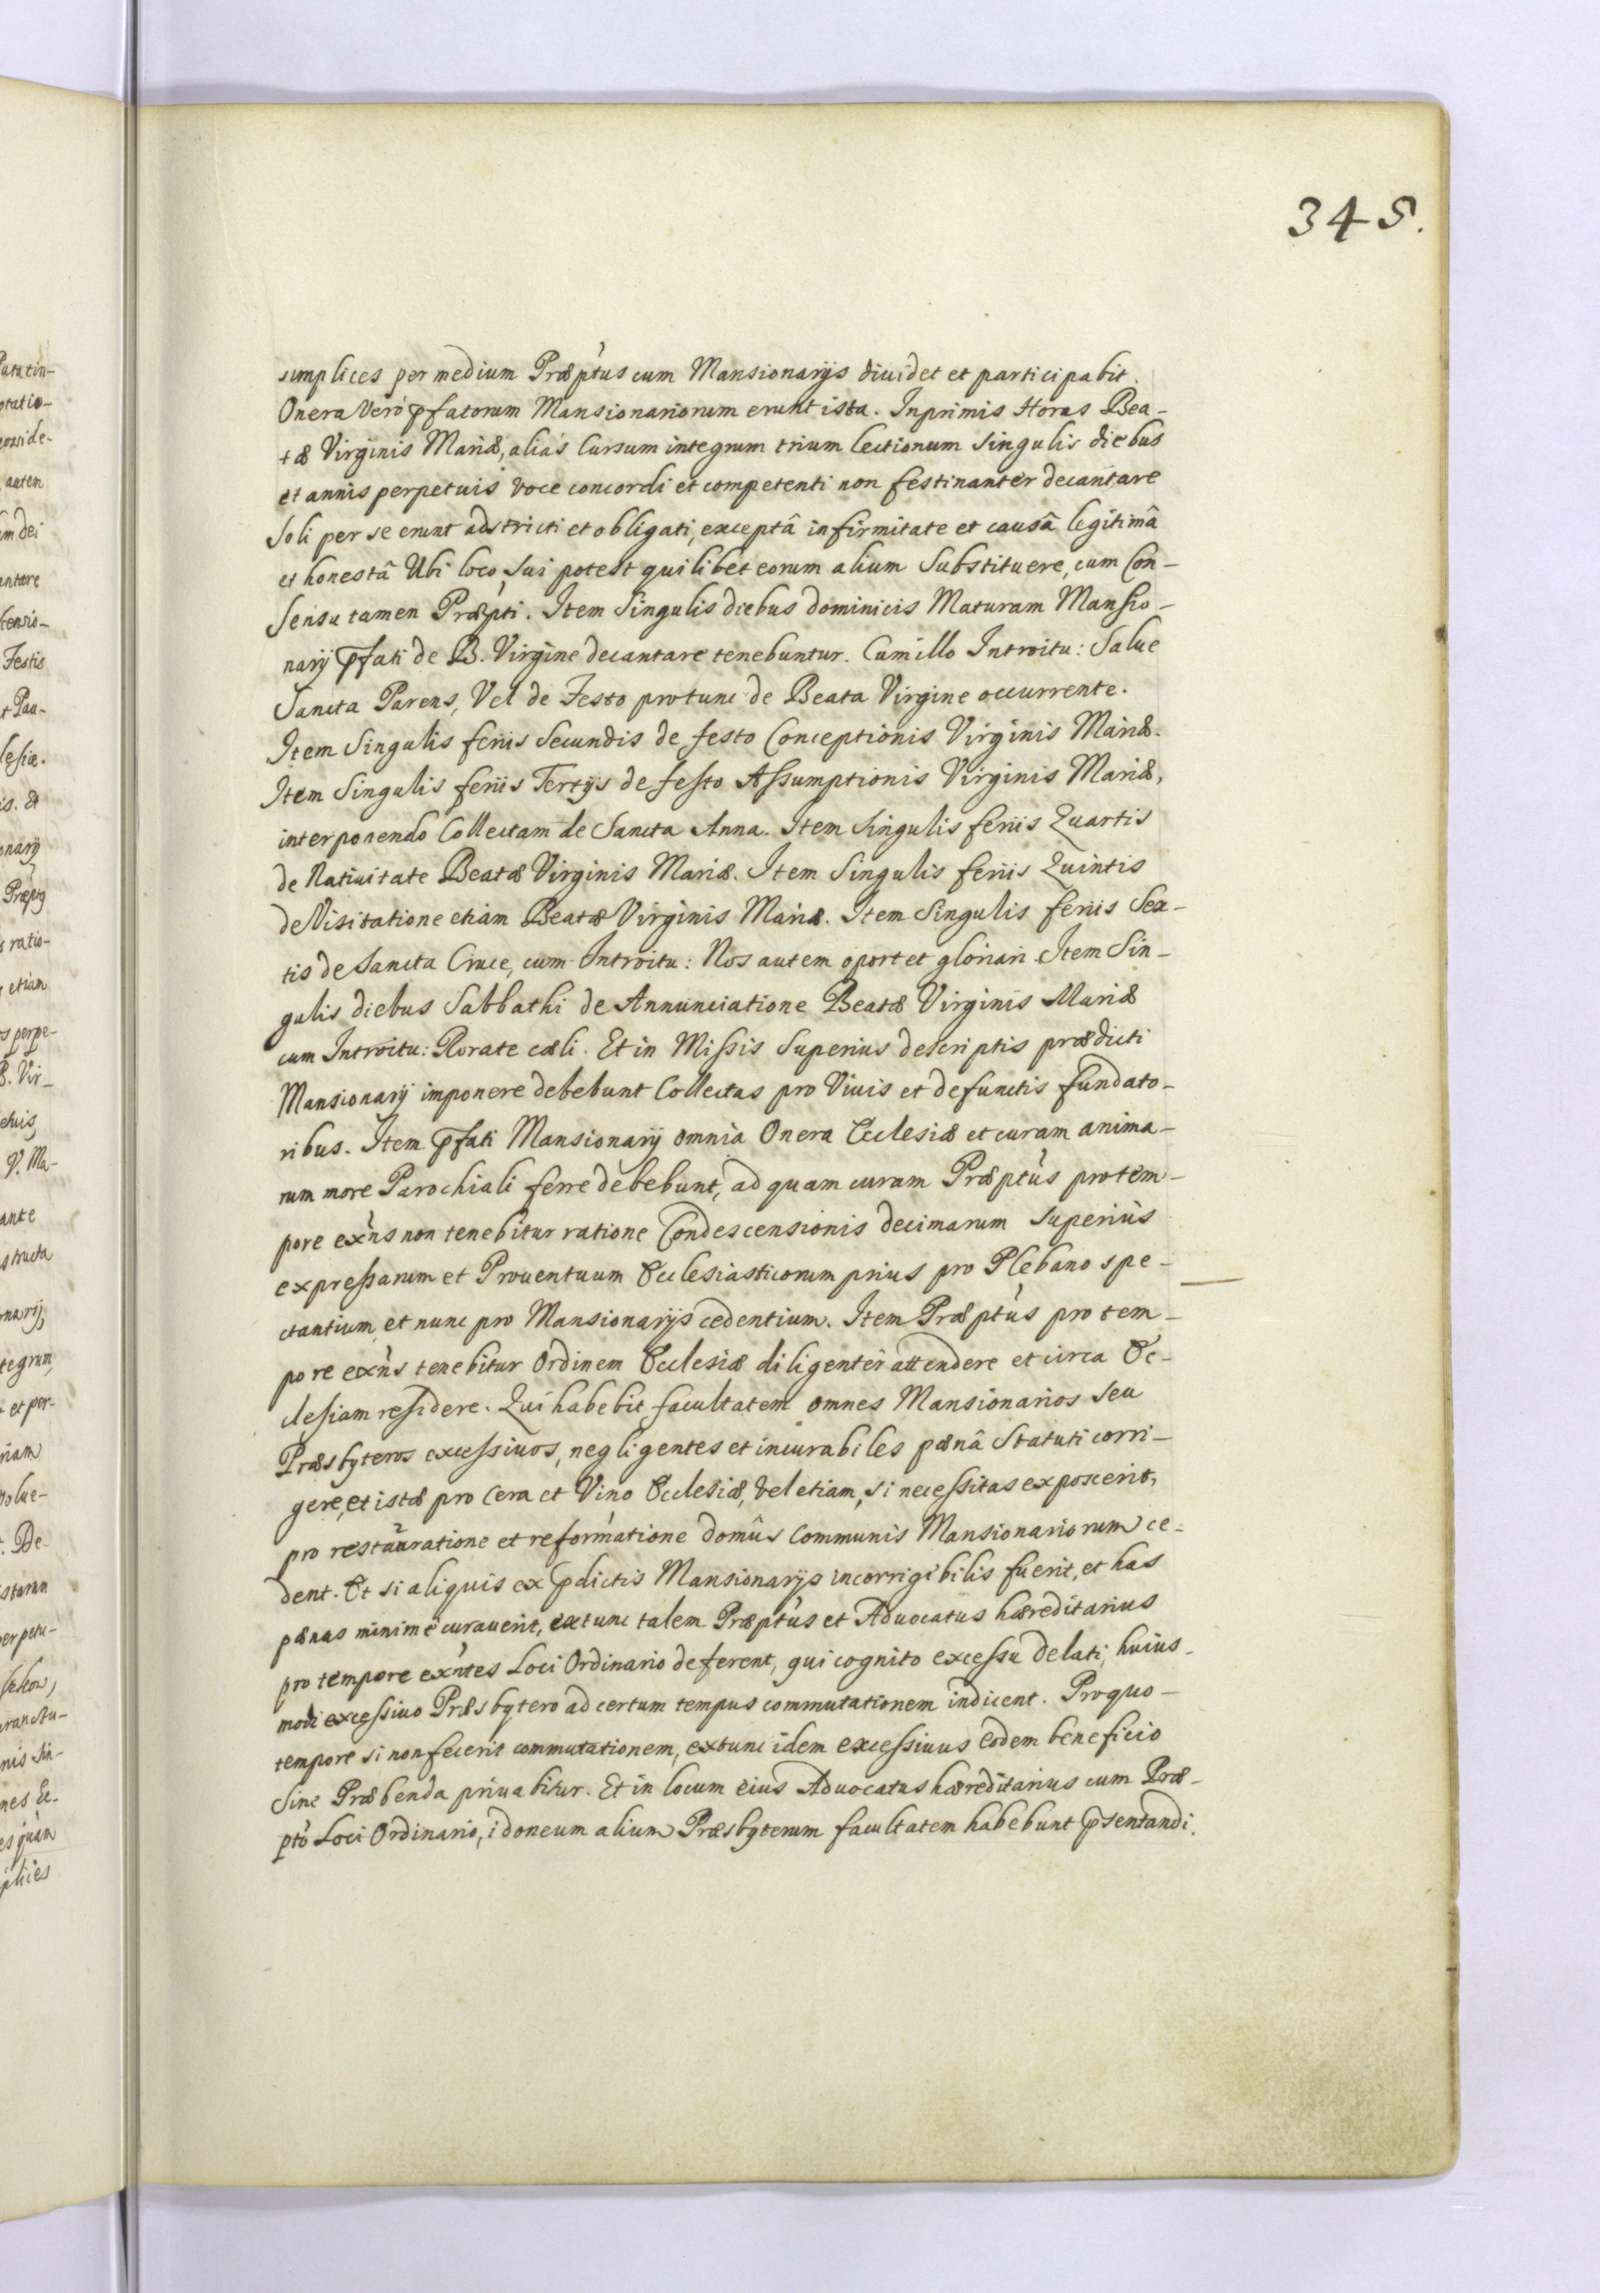 345.
simplices per medium Præptus cum Mansionarijs diuidet et participabit.
Onera Verò pfatorum Mansionariorum erunt ista. Inprimis Horas Bea-
tæ Virginis Mariæ, aliàs Cursum integrum trium lectionum singulis diebus
et annis perpetuis voce concordi et competenti non festinanter decantare
soli per se erunt adstricti et obligati, exceptâ infirmitate et causâ legitimâ
et honestâ Ubi loco sui potest quilibet eorum alium substituere, cum Con-
sensu tamen Præpti. Item singulis diebus dominicis Maturam Mansio-
narij pfati de B. Virgine decantare tenebuntur. Cum illo Introitu: Salue
Sancta Parens, Vel de Festo protunc de Beata Virgine occurrente.
Item singulis ferijs secundis de festo Conceptionis Virginis Mariæ.
Item singulis ferijs Tertijs de festo Assumptionis Virginis Mariæ,
interponendo Collectam de Sancta Anna. Item singulis ferijs Quartis
de Natiuitate Beatæ Virginis Mariæ. Item Singulis ferijs Quintis
de Visitatione etiam Beatæ Virginis Mariæ. Item Singulis ferijs Sex-
tis de Sancta Cruce, cum Introitu: Nos autem oportet gloriari. Item Sin-
gulis diebus Sabbathi de Annunciatione Beatæ Virginis Mariæ
cum Introitu: Rorate cæli. Et in Missis superius descriptis prædicti
Mansionarij imponere debebunt Collectas pro Viuis et defunctis fundato-
ribus. Item pfati Mansionarij omnia Onera Ecclesiæ et curam anima-
rum more Parochiali ferre debebunt, ad quam curam Præptus protem-
pore exñs non tenebitur ratione Condescensionis decimarum superius
expressarum et Prouentuum Ecclesiasticorum prius pro Plebano spe-
ctantium, et nunc pro Mansionarijs cedentium. Item Præptus pro tem-
pore exñs tenebitur Ordinem Ecclesiæ diligenter attendere et circa Ec-
clesiam residere. Qui habebit facultatem omnes Mansionarios seu
Præsbyteros excessiuos, negligentes et incurabiles pænâ Statuti corri-
gere, et istæ pro Cera et Vino Ecclesiæ, vel etiam, si necessitas exposcerit,
pro restauratione et reformatione domûs Communis Mansionariorum ce-
dent. Et si aliquis ex pdictis Mansionarijs incorrigibilis fuerit, et has
pænas minimè curauerit, extunc talem Præptus et Aduocatus hæreditarius
pro tempore exñtes Loci Ordinario deferent, qui cognito excessu delati, huius-
modi excessiuo Præsbytero ad certum tempus commutationem indicent. Pro quo-
tempore si non fecerit commutationem, extunc idem excessiuus eodem beneficio
sine Præbenda priuabitur. Et in locum eius Aduocatus hæreditarius cum Præ-
ptô Loci Ordinario, idoneum alium Præsbyterum facultatem habebunt psentandi.